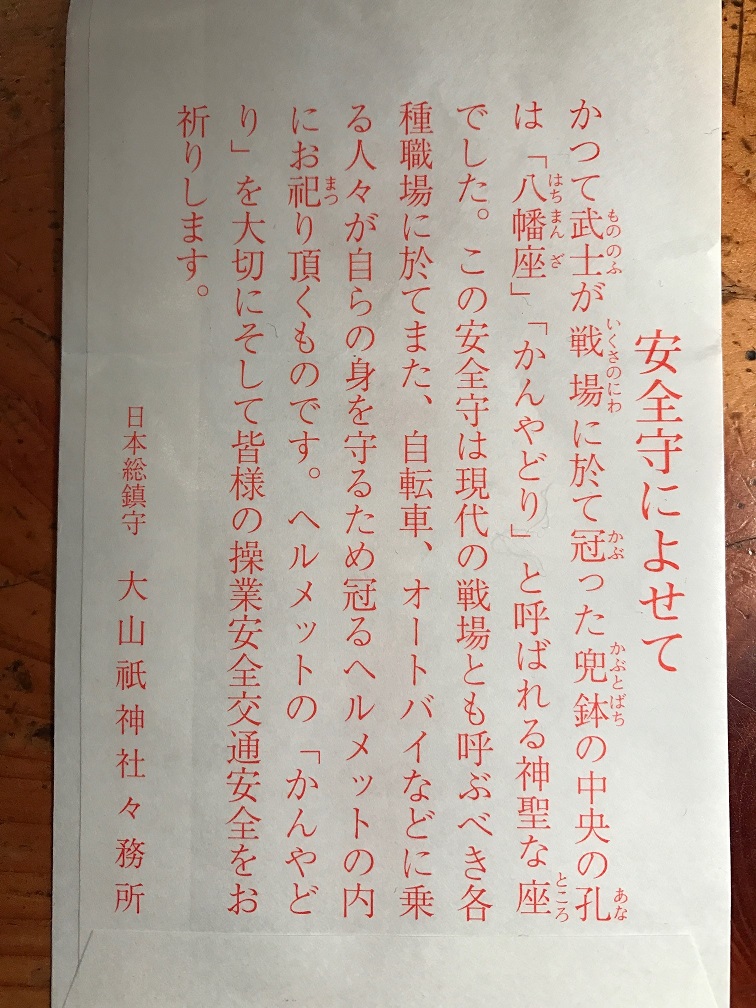 安全守によせて
かつて武士が戦場に於て冠った兜鉢の中央の孔
は「八幡座」「かんやどり」と呼ばれる神聖な座
でした。この安全守は現代の戦場とも呼ぶべき各
種職場に於てまた、自転車、オートバイなどに乗
る人々が自らの身を守るため冠るヘルメットの内
にお祀り頂くものです。ヘルメットの「かんやど
り」を大切にそして皆様の操業安全交通安全をお
祈りします。
日本総鎮守 大山祇神社々務所
もののふ
いくさのにわ
かぶ
かぶとばち
あな
はちまんざ
ところ
まつ